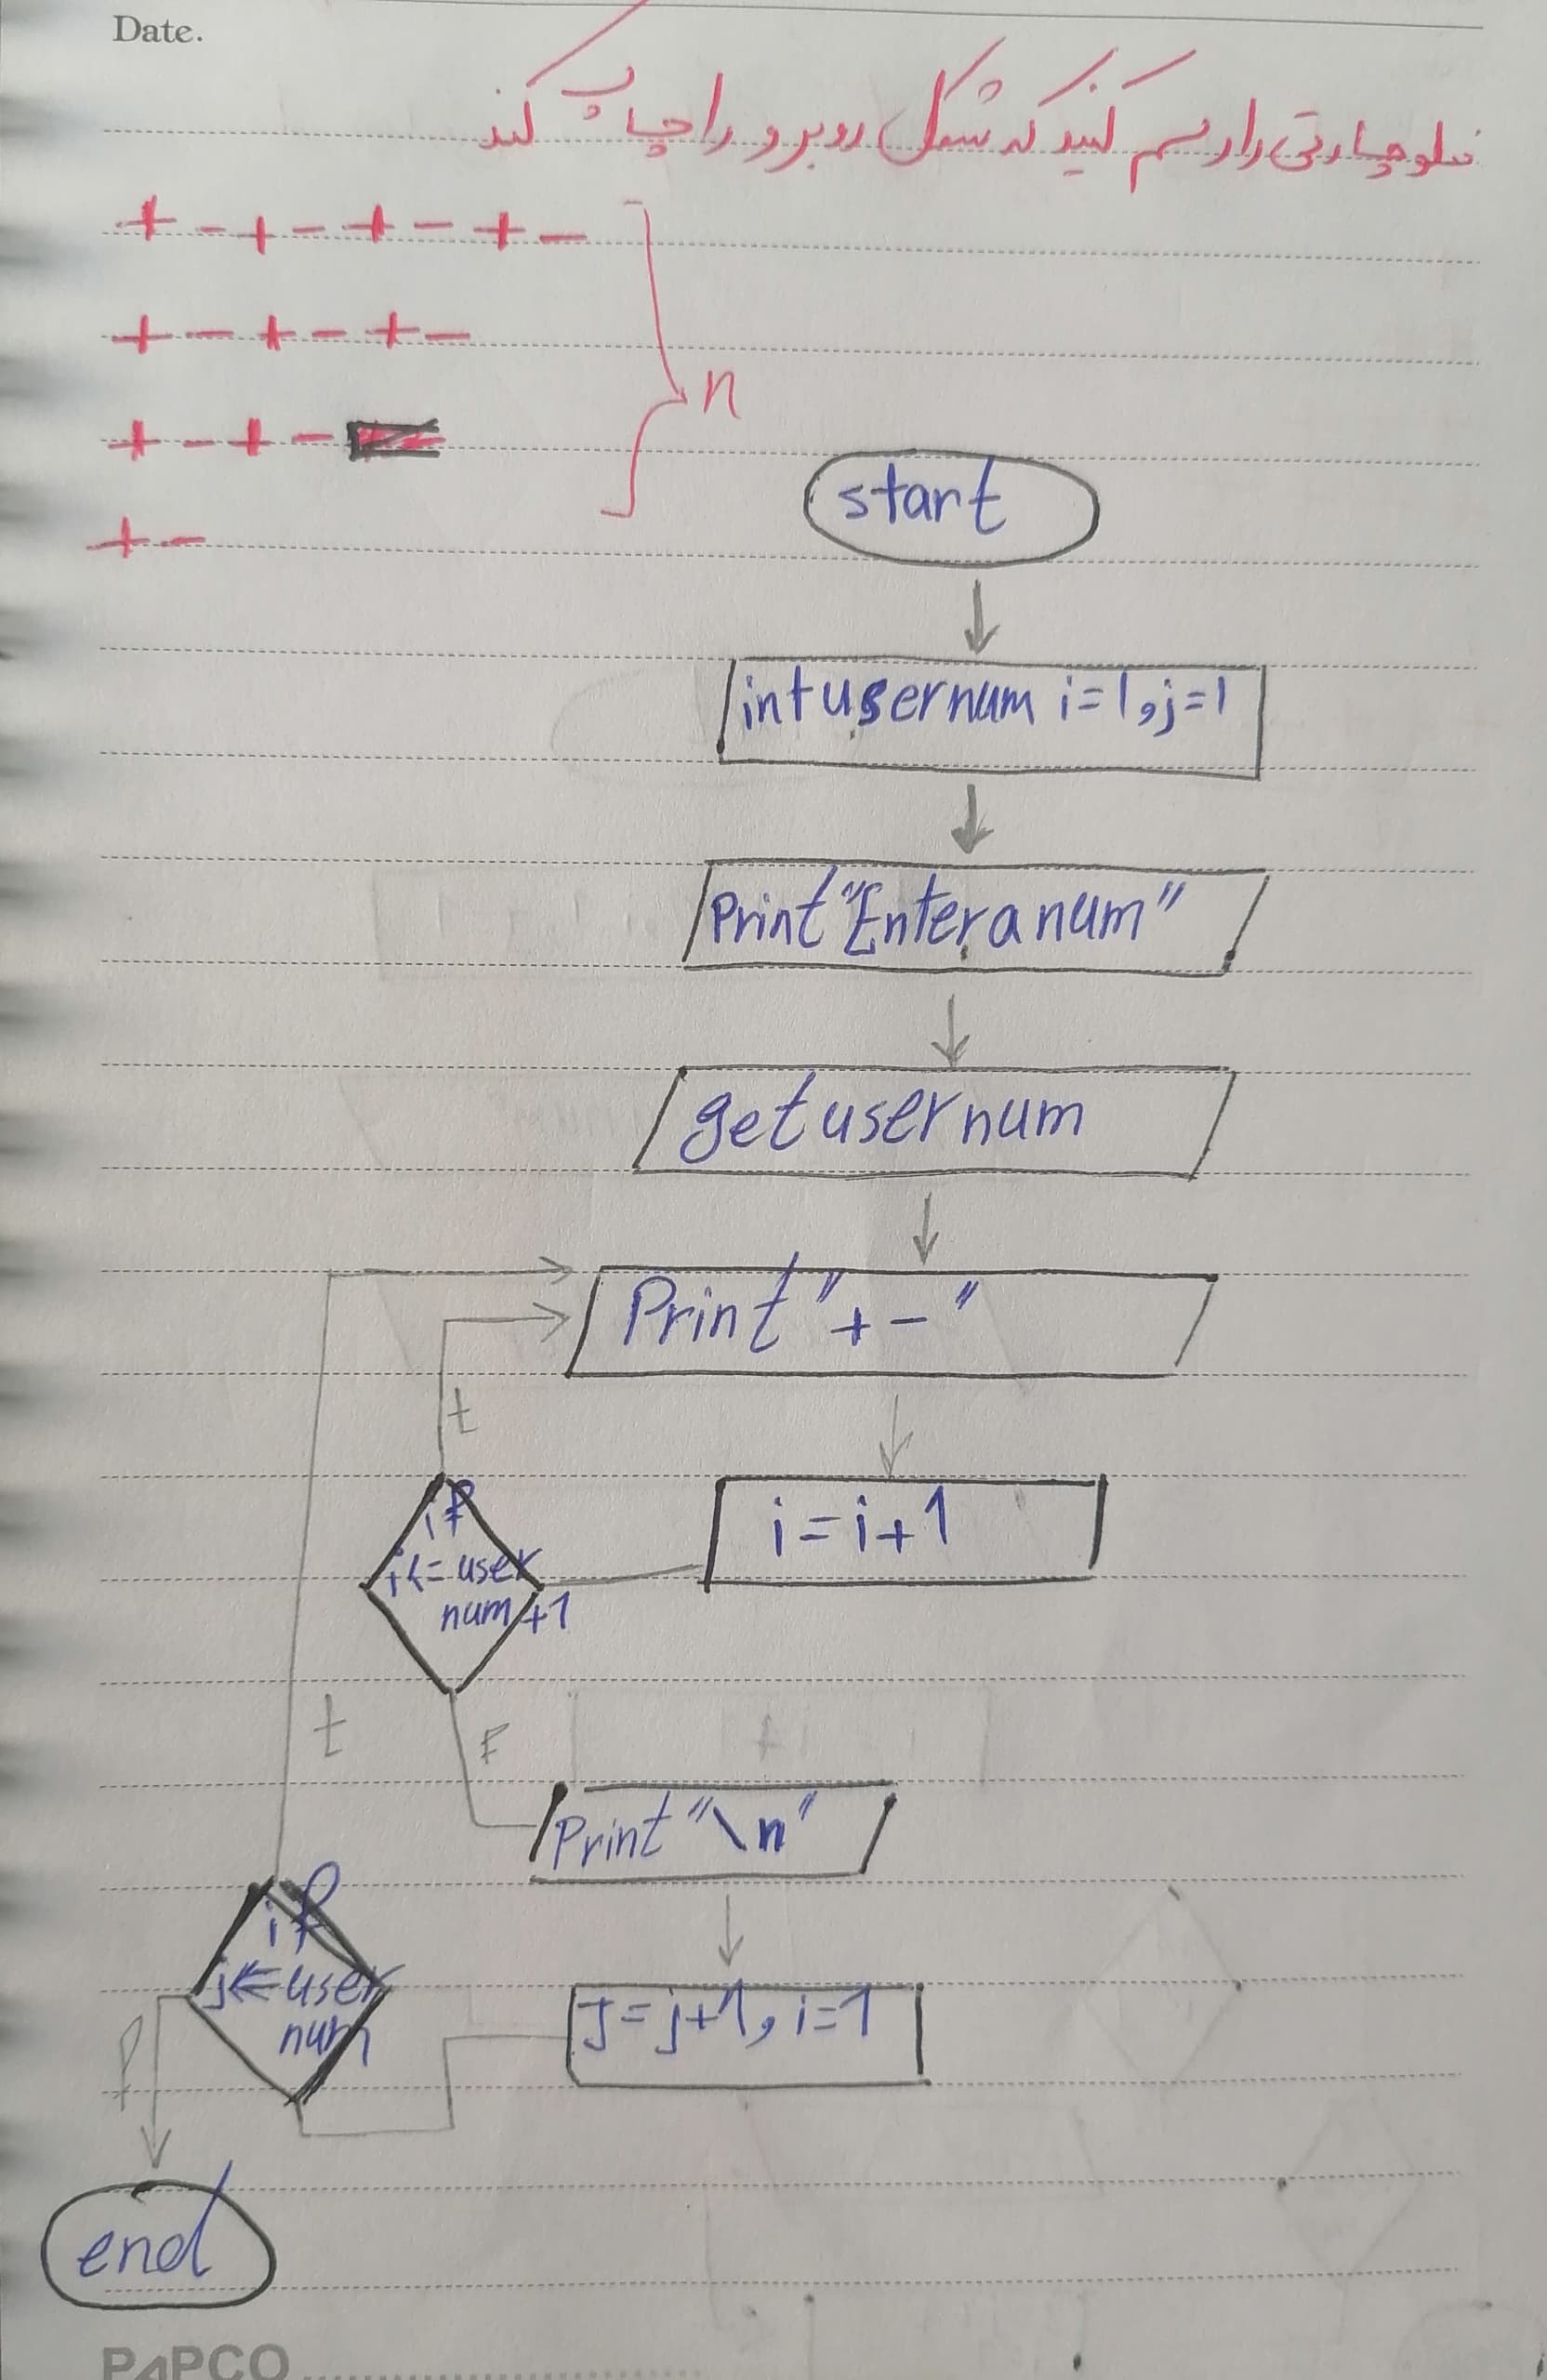 Date.
فلوچارتی را رسم کنید که شکل روبرو را چاپ کند
+ - + - + - + -
+ - + - + -
+ - + -
+ -
n
start
int usernum i=1,j=1
Print "Enter a num"
get usernum
Print "+ - "
t
i=i+1
if
i<= user
num+1
t
F
Print "\n"
if
j<=user
num
J=j+1, i=1
f
end
PAPCO